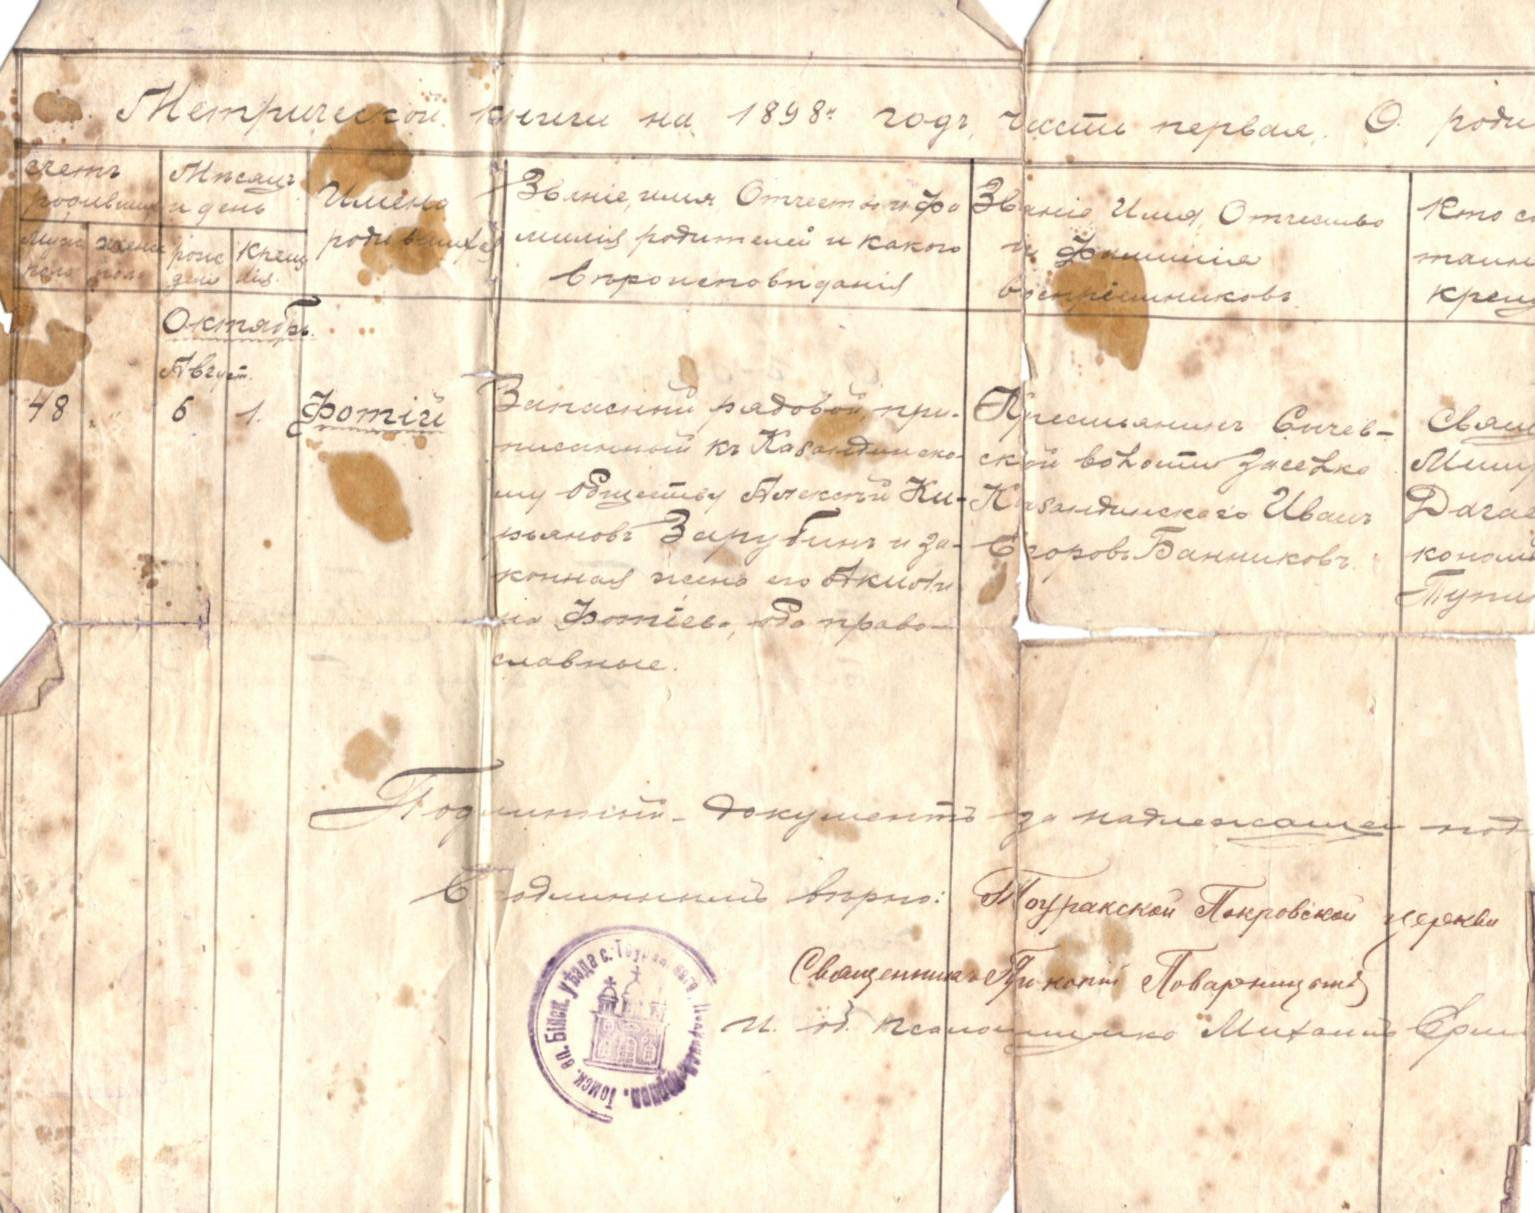 Метрической книги на 1898й годъ, часть первая. О роди
счетъ родившихся
Мѣсяцъ и день
Имена родившихся
Званіе, имя, Отчество и фа
милія родителей и какого
вѣроисповѣданія
Званіе, Имя, Отчество
и Фамилія
воспріемниковъ
Кто со
таин
крещ
Муж
пола
женс
пола
рож
денія
Крещ
нія.
Октябрь.
Август.
48
6
1.
Фотій
Запасный рядовой, при-
писанный къ Каяндинско-
му обществу Алексѣй Ки-
рьяновъ Зарубинъ и за-
конная жена его Акили
на Фотіева, оба право-
славные.
Крестьянинъ Сычев-
ской волости
Иванъ
Егоровъ Банниковъ.
Свящ
Подлинный документъ за надлежащею под
Съ подлиннымъ вѣрно: Тоуракской Покровской церкви
Священникъ
И. об. псаломщика Михаилъ
Томск. еп. Бійск. уѣзда с.